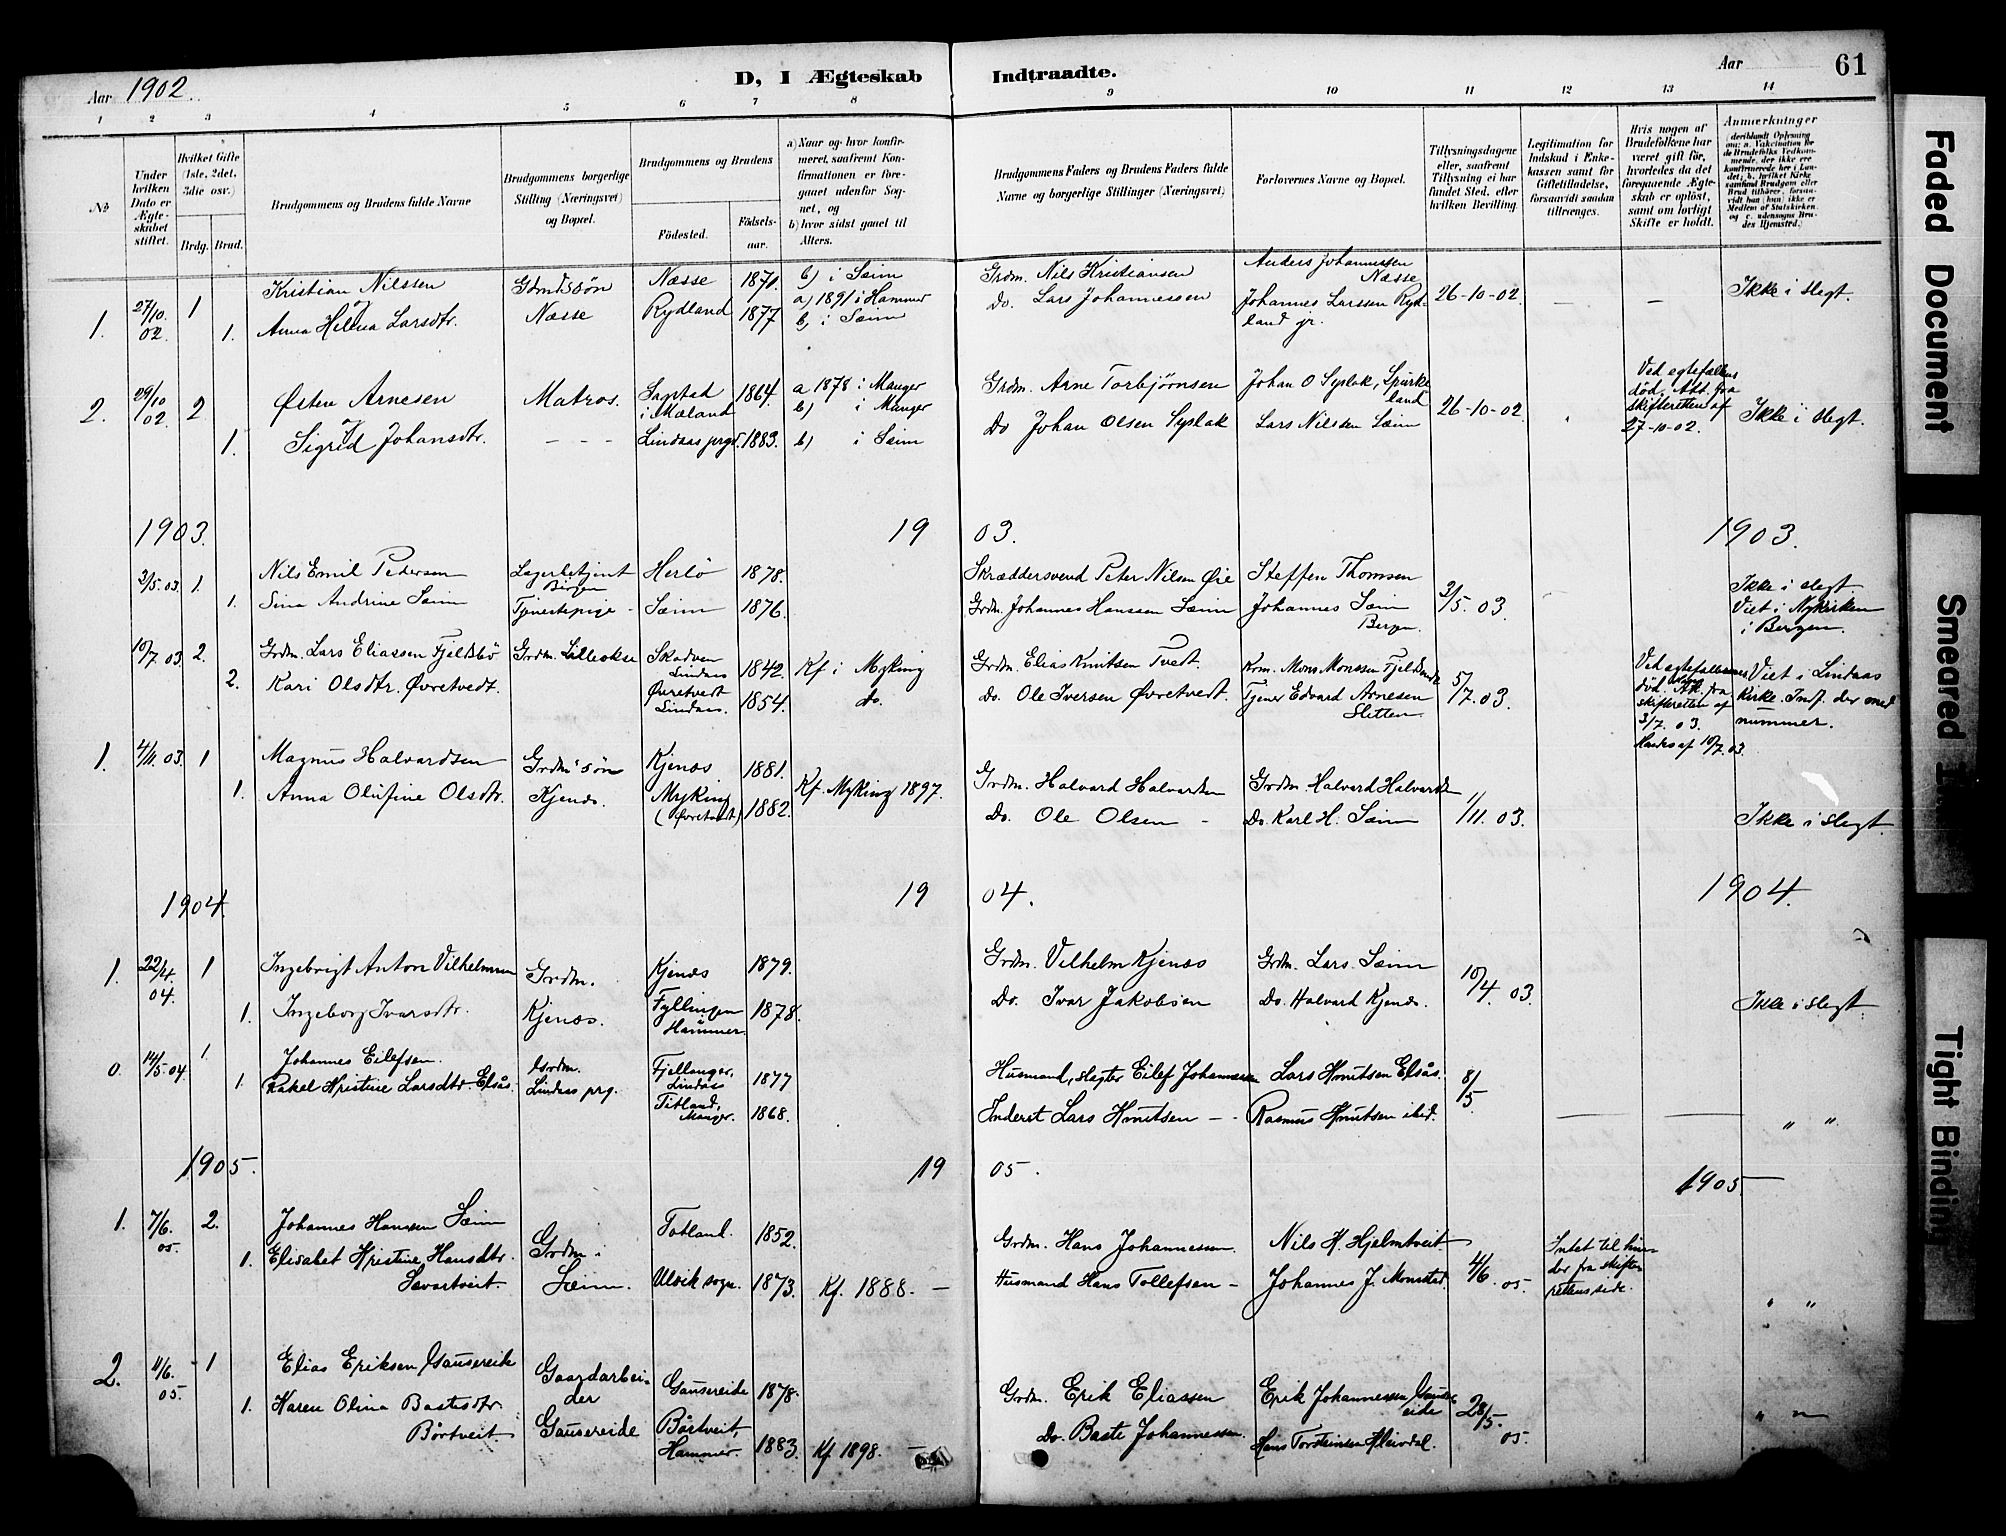 Aar 1902.
D, I Ægteskab Indtraadte.
Aar
61
1 2 3 4 5 6 7 8 9 10 11 12 13 14
No
Under hvilken Dato er Ægteskabet stiftet.
Hvilket Gifte (1ste, 2det, 3die osv.)
Brdg. Brud.
Brudgommens og Brudens fulde Navne
Brudgommens borgerlige Stilling (Næringsvei) og Bopæl.
Brudgommens og Brudens
Födested.
Födselsaar.
a) Naar og hvor konfirmeret, saafremt Konfirmationen er foregaaet udenför Sognet, og
b) hvor sidst gaaet til Alters.
Brudgommens Faders og Brudens Faders fulde Navne og borgerlige Stillinger (Næringsvei)
Forlovernes Navne og Bopæl.
Tillysningsdagene eller, saafremt Tillysning ei har fundet Sted, efter hvilken Bevilling.
Legitimation for Indskud i Enkekassen samt for Giftetilladelse, forsaavidt saadan tiltrænges.
Hvis nogen af Brudefolkene har været gift för, hvorledes da det foregaaende Ægteskab er oplöst, samt om lovligt Skifte er holdt.
Anmærkninger
1. 27/10 02 1 Kristian Nilssen Grdmdssön Næsse 1871. b) i Sæim Grdm. Nils Kristiansen Anders Johannessen Næsse 26-10-02. — — Ikke i slegt.
1. Anna Helena Larsdtr. Næsse Rydland 1877 a) 1891 i Hammer b) i Sæim Do. Lars Johannessen Johannes Larssen Rydland jr.
2. 29/10 02 2 Østen Arnesen Matros. Sagstad i Mæland 1864. a 1878 i Manger b) i Manger Grdm. Arne Torbjørnsen Johan O Syslak, Spurkeland 26-10-02 Ved egtefællens död. Att. fra skifteretten af 27-10-02. Ikke i slegt.
1. Sigrid Johansdtr. - - - Lindaas prgd. 1883. b) i Sæim Do Johan Olsen Syslak Lars Nilsen Sæim
1903. 1903. 1903.
2/5.03 1. Nils Emil Pedersen Lagerbetjent Bergen Herlö 1878. Skræddersvend Peter Nilsen Øie Steffen Thomsen 2/5.03. Ikke i slegt Viet i Nykirken i Bergen.
1. Sina Andrine Sæim Tjenestepige - Sæim 1876. Grdm. Johannes Hanssen Sæim Johannes Sæim Bergen.
10/7 03 2. Grdm. Lars Eliassen Fjeldsbö Grdm. Lilleokse Skodven Lindaas 1842. Kf i Myking Grdm. Elias Knutsen Tvedt. Mons Monssen 5/7.03. Ved egtefællernes död. Att. fra skifteretten af 3/7.03. Viet i Lindaas kirke. Indf. der med nummer.
2. Kari Olsdtr. Øvretvedt. Øvretvedt Lindaas. 1854. do. Do. Ole Iversen Øvretvedt. Tjener Edvard Arnesen Sletten af 10/7 03.
1. 4/11.03. 1 Magnus Halvardsen Grdms sön Kjenæs 1881. Grdm. Halvard Halvardsen Grdm. Halvard Halvardsen 1/11 03. Ikke i slegt.
1. Anna Olufine Olsdtr. Kjenæs. Myking (Øvretvedt) 1882. Kf. Myking 1897. Do. Ole Olsen - Do. Karl H. Sæim
1904. 1904. 1904.
1. 22/4 04. 1 Ingebrigt Anton Vilhelmsen Grdm. Kjenæs 1879. Grdm. Vilhelm Kjenæs Grdm. Lars Sæim 10/4. 03. Ikke i slegt
1. Ingeborg Ivarsdtr. Kjenæs. Fyllingen Hammer. 1878. Do. Ivar Jakobsen Do. Halvard Kjenæs.
0. 14/5.04. 1. Johannes Eilefsen. Grdm. Fjellanger, Lindaas 1877 Husmand, slagter Eilef Johannessen Lars Knutsen Elsås. 8/5.
1. Rakel Kristine Larsdtr. Elsås. Lindaas prg. Titland, Manger. 1868. Inderst Lars Knutsen - - Rasmus Knutsen ibid. — — " "
1905. 1905. 1905
1. 7/6. 05. 2. Johannes Hanssen Sæim Grdm. i Totland. 1852. Grdm. Hans Johannessen. Nils H. Hjelmtveit 4/6 05. Intet til hinder fra skifterettens side. " "
1. Elisabet Kristine Hansdtr. Sævartveit. Sæim. Ulvik sogn. 1873. Kf. 1888. — Husmand Hans Tollefsen - Johannes J. Monstad.
2. 11/6. 05. 1 Elias Eriksen Gausereide Gaardarbeider Gausereide 1878. Grdm. Erik Eliassen Erik Johannessen Gausereide 28/5. 05. " "
1. Karen Olina Bastesdtr. Börtveit. Gausereide Börtveit, Hammer. 1883. Kf 1898. — Do. Baste Johannessen. Hans Torsteinsen Kleivdal.
Faded Document
Smeared
Tight Binding